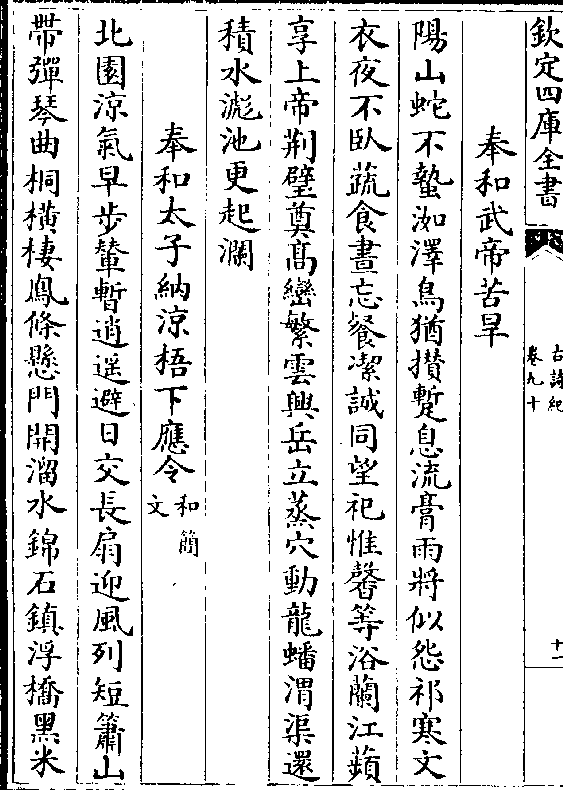 欽定四庫全書
古詩紀
卷九十
十一
奉和武帝苦旱
陽山蛇不蟄洳澤鳥猶攢蹔息流膏雨將似怨祁寒文
衣夜不臥蔬食晝忘餐潔誠同望祀惟馨等浴蘭江蘋
享上帝荆璧奠高巒繁雲興岳立蒸穴動龍蟠渭渠還
積水滮池更起瀾
奉和太子納涼梧下應令和簡文
北園涼氣早步輦暫逍遥避日交長扇迎風列短簫山
帶彈琴曲桐横棲鳳條懸門開溜水錦石鎮浮橋黑米